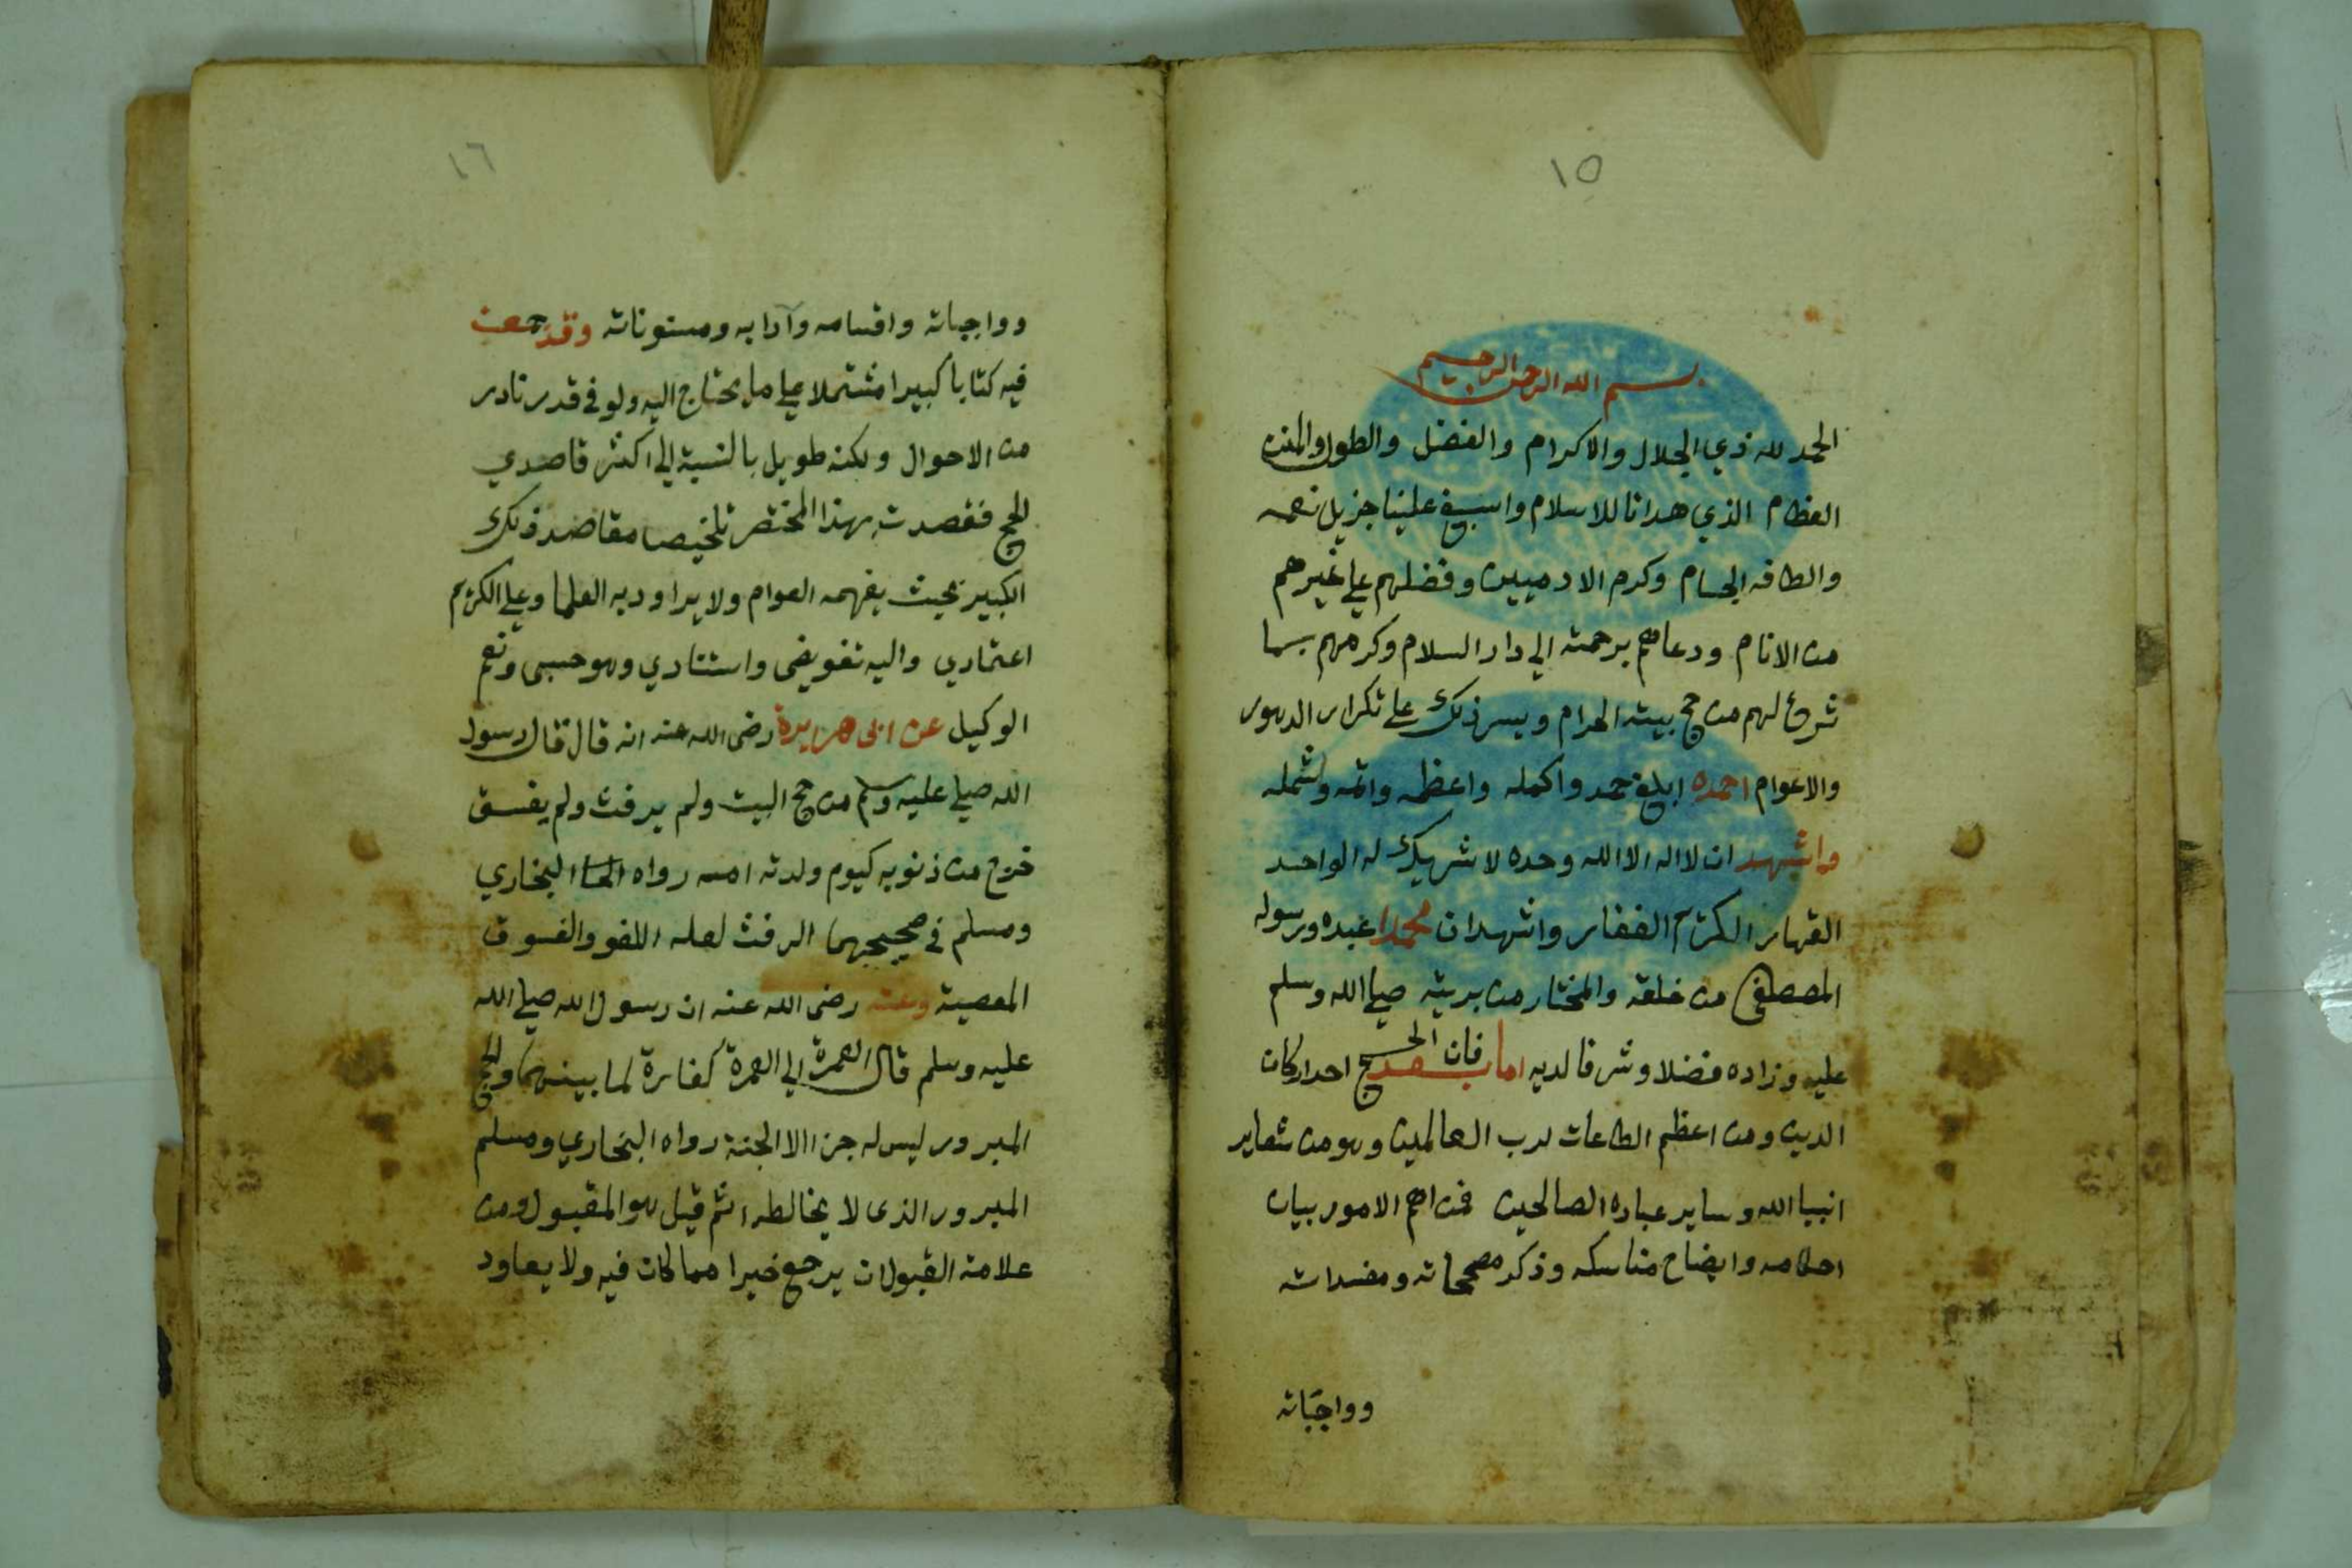 ١٥
بسم الله الرحمن الرحيم
الحمد لله ذي الجلال والاكرام والفضل والطول والمنن
العظام الذي هدانا للاسلام واسبغ علينا جزيل نعمه
والطافه الجسام وكرم الادميين وفضلهم علي غيرهم
من الانام ودعاهم برحمته الي دار السلام وكرمهم بما
شرع لهم من حج بيته الحرام ويسر ذلك علي تكرار الدهور
والاعوام احمده ابلغ حمد واكمله واعظمه واتمه واشمله
واشهد ان لا اله الا الله وحده لا شريك له الواحد
القهار الكريم الغفار واشهد ان محمدا عبده ورسوله
المصطفى من خلقه والمختار من بريته صلي الله وسلم
عليه وزاده فضلا وشرفا لديه اما بعد فان الحج احد اركان
الدين ومن اعظم الطاعات لرب العالمين وهو من شعاير
انبيا الله وساير عباده الصالحين فمن اهم الامور بيان
احكامه وايضاح مناسكه وذكر مصححاته ومفسداته
وواجباته
١٦
وواجباته واقسامه وآدابه ومسنوناته وقد جمعت
فيه كتابا كبيرا مشتملا علي ما يحتاج اليه ولو في قدر نادر
من الاحوال ولكنه طويل بالنسبة الي اكثر قاصدي
الحج فقصدت بهذا المختصر تلخيصا مقاصد ذلك
الكبير بحيث يفهمه العوام ولا يراوديه العلما وعلي الكريم
اعتمادي واليه تفويضي واستنادي وهو حسبى ونعم
الوكيل عن ابى هريرة رضى الله عنه انه قال قال رسول
الله صلي عليه وسلم من حج البيت ولم يرفث ولم يفسق
خرج من ذنوبه كيوم ولدته امه رواه البخاري
ومسلم في صحيحيهما الرفث لعله اللغو والفسوق
المعصية وعنه رضى الله عنه ان رسول الله صلي الله
عليه وسلم قال العمرة الي العمرة كفارة لما بينهما والحج
المبرور ليس له جزا الا الجنة رواه البخاري ومسلم
المبرور الذى لا يخالطه اثم قيل هو المقبول ومن
علامة القبول ان يرجع خيرا مما كان فيه ولا يعاود